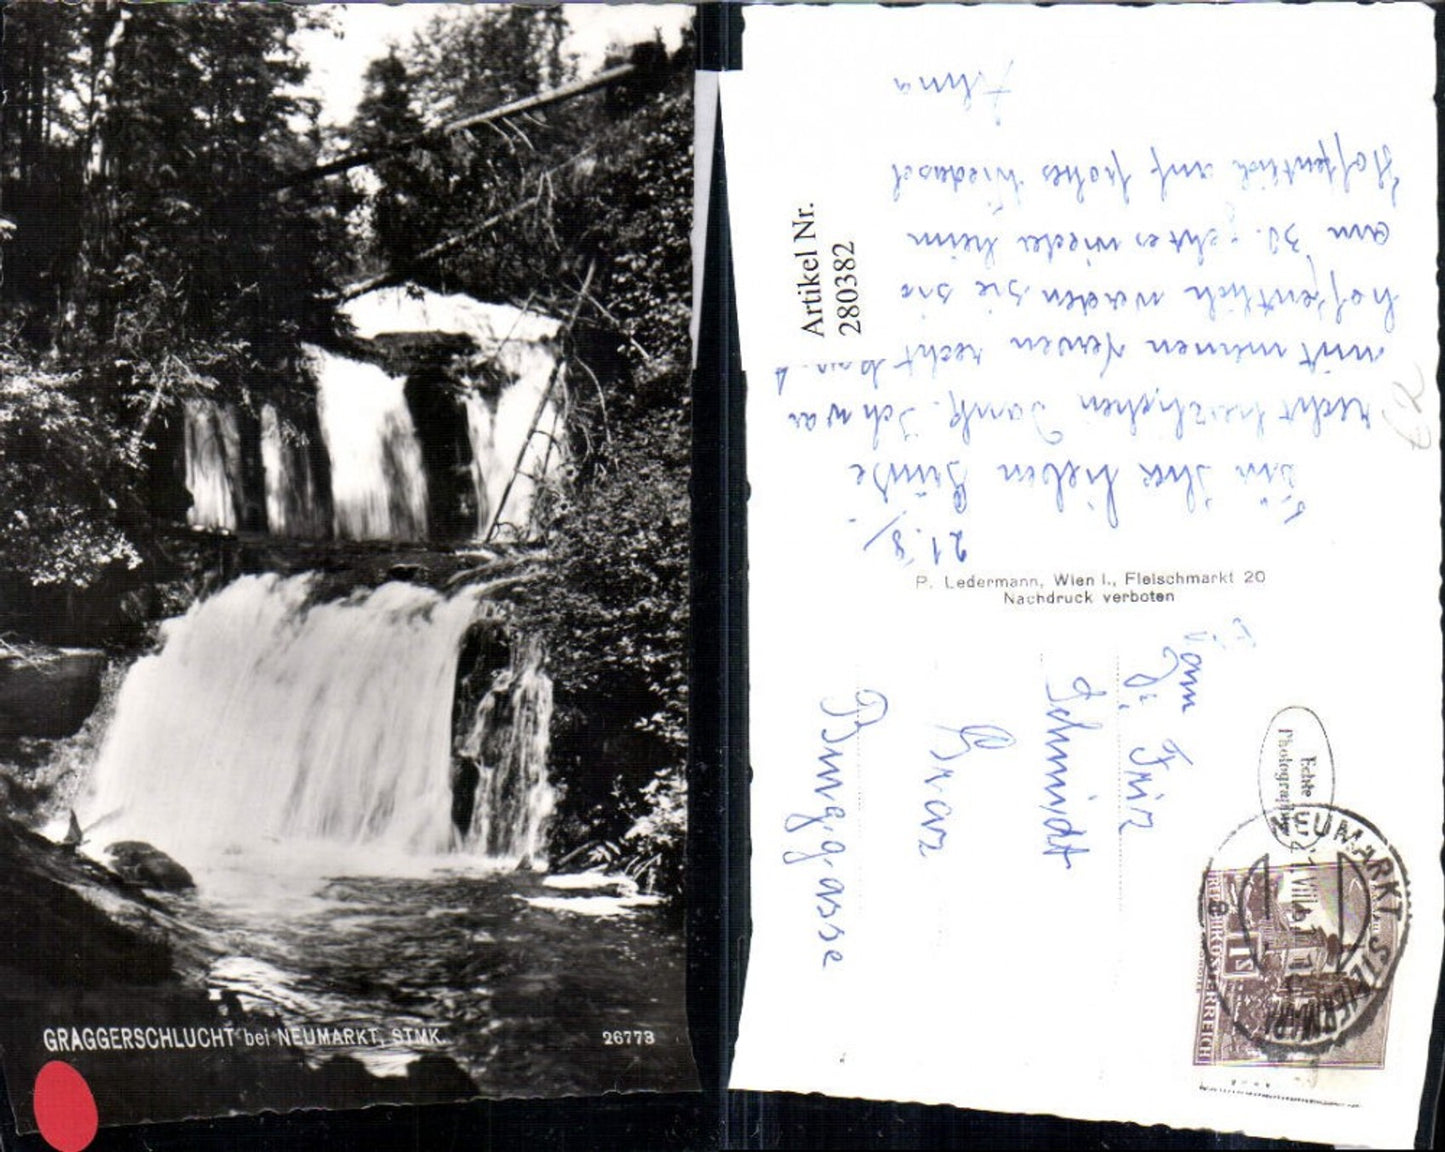 GRAGGERSCHLUCHT bei NEUMARKT, STMK.
26773
Artikel Nr.
280382
21.8.
Für Ihre lieben Grüße
recht herzlichen Dank. Ich war
mit meinen recht
hoffentlich werden sie
am 30. geht es wieder heim
Hoffentlich auf frohes Wiedersel
P. Ledermann, Wien I., Fleischmarkt 20
Nachdruck verboten
Fam
Schmidt
Graz
Echte
Photographie
NEUMARKT
STEIERMARK
REPUBLIK ÖSTERREICH